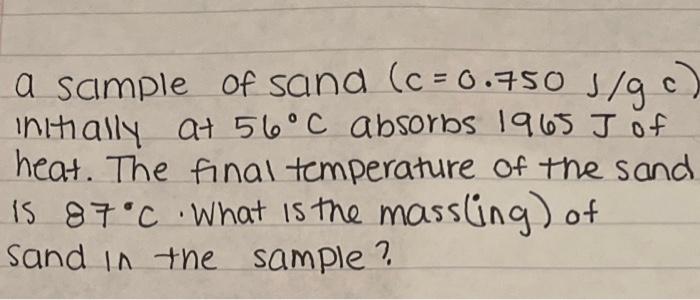 a sample of sand (c = 0.750 J/g c)
initially at 56°C absorbs 1965 J of
heat. The final temperature of the sand
is 87°C. What is the mass(in g) of
sand in the sample?